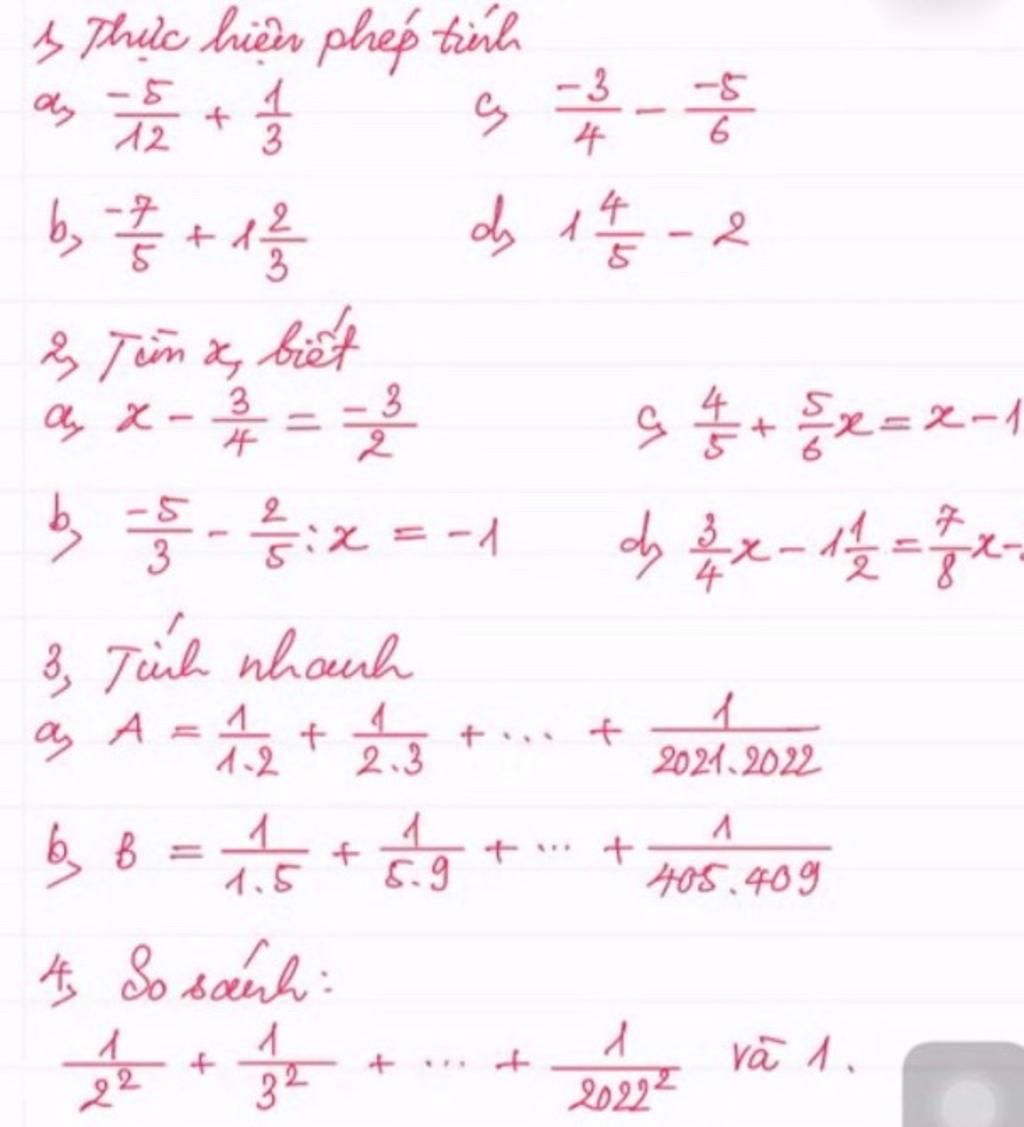 1, Thực hiện phép tính
a, -5/12 + 1/3    c, -3/4 - -5/6
b, -7/5 + 1 2/3    d, 1 4/5 - 2
2, Tìm x, biết
a, x - 3/4 = -3/2    c, 4/5 + 5/6 x = x - 1
b, -5/3 - 2/5 : x = -1    d, 3/4 x - 1 1/2 = 7/8 x -
3, Tính nhanh
a, A = 1/1.2 + 1/2.3 + ... + 1/2021.2022
b, B = 1/1.5 + 1/5.9 + ... + 1/405.409
4, So sánh:
1/2² + 1/3² + ... + 1/2022² và 1.